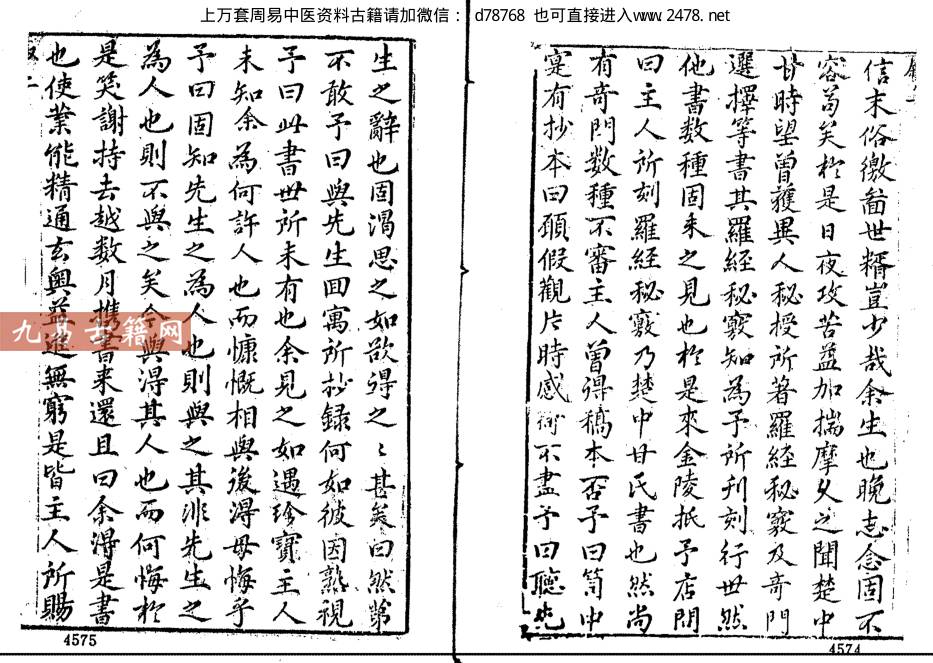 上万套周易中医资料古籍请加微信：d78768 也可直接进入www.2478.net
信末俗徼
世糈豈少哉余生也晚志念固不
容苟矣於是日夜攻苦益加揣摩久之聞楚中
甘時望曾獲異人秘授所著羅經秘竅及奇門
選擇等書其羅經秘竅知為予所刊刻行世然
他書数種固未之見也於是來金陵抵予店問
曰主人所刻羅經秘竅乃楚中甘氏書也然尚
有奇門数種不審主人曾得稿本否予曰笥中
寔有抄本曰願假觀片時感
不盡予曰聽先
4574
生之辭也固渴思之如欲得之〻甚矣曰然第
不敢予曰與先生回寓所抄録何如彼因熟視
予曰此書世所未有也余見之如遇珍寶主人
未知余為何許人也而慷慨相與後得毋悔乎
予曰固知先生之為人也則與之其非先生之
為人也則不與之矣今與得其人也而何悔於
是笑謝持去越数月携書来還且曰余得是書
也使業能精通玄奥益進無窮是皆主人所賜
4575
九易古籍网